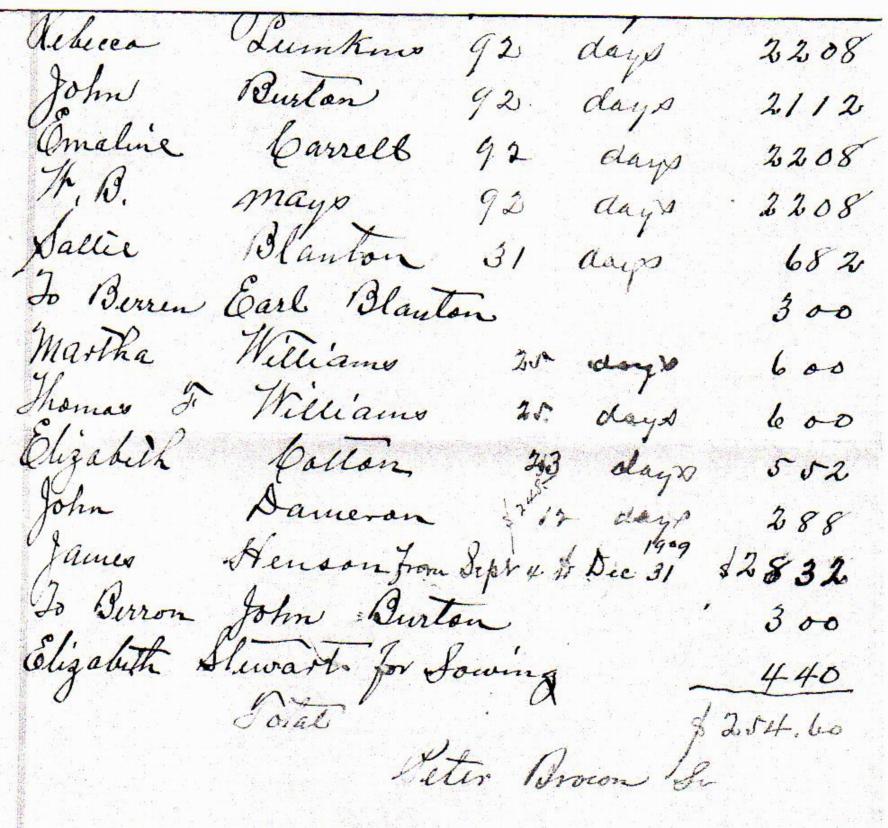 Rebecca Lumkins 92 days 2208
John Burton 92 days 2112
Emaline Carrell 92 days 2208
W. B. mays 92 days 2208
Sallie Blanton 31 days 682
To Berren Earl Blanton 300
Martha Williams 25 days 600
Thomas F Williams 25 days 600
Elizabeth Cotton 23 days 552
John Dameron 12 days 288
James Henson from Sept 4 to Dec 31 1909 $2832
To Berron John Burton 300
Elizabeth Stewart for Sowing 440
Total $254.60
Peter Brown Sr